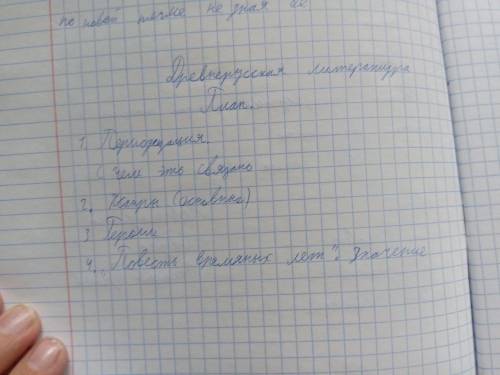 по новой не зная её
Древнерусская литература
План.
1. Периодизация.
С чем это связано
2. Жанры (основные)
3 Герои
4. „Повесть времяных лет". Значение